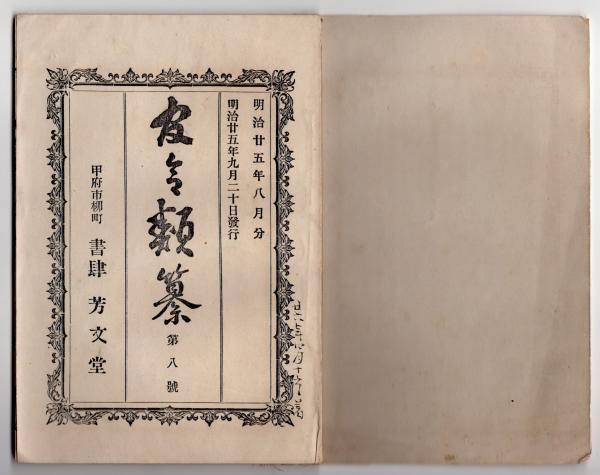 明治廿五年八月分
明治廿五年九月二十日發行
官令類纂
第八號
甲府市柳町 書肆 芳文堂